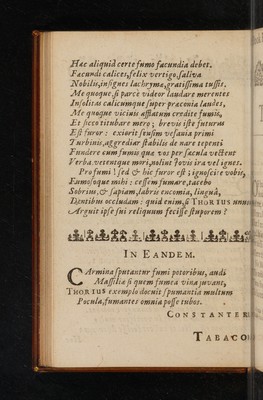 Hac aliquid certe fumo facundia debet.
Facundi calices, felix vertigo, saliva
Nobilis, insignes lachryma, gratissima tussis.
Me quoque, si parcè videor laudare merentes
Insolitas calicumque super præconia laudes,
Me quoque vicinis afflatum credite fumis,
Et sicco titubare mero; brevis iste futurus
Est furor: exiorit sensim vesania primi
Turbinis, aggrediar stabilis de nare repenti
Fundere cum fumis qua vos per sæcula vectent
Verba, vetentque mori, nolint Jovis ira vel ignes.
Pro fumi! sed & hic furor est; ignoscite vobis,
Fumosque mihi: cessem fumare, tacebo
Sobrius, & sapiam, lubrica encomia, linguâ,
Dentibus occludam: quid enim, si THORIUS unus
Arguit ipse sui reliquum fecisse stuporem?
IN EANDEM.
CArmina sputantur fumi potoribus, audi
Massiliæ si quem fumea vina juvant,
THORIUS exemplo docuit spumantia multum
Pocula, fumantes omnia posse tubos.
CONSTANTER
TABACO